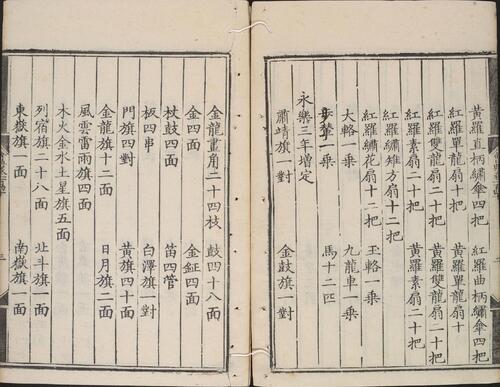 黃羅直柄繡傘四把 紅羅曲柄繡傘四把
紅羅單龍扇十把 黃羅單龍扇十
紅羅雙龍扇二十把 黃羅雙龍扇二十把
紅羅素扇二十把 黃羅素扇二十把
紅羅繡雉方扇十二把
紅羅繡花扇十二把 玉輅一乗
大輅一乗 九龍車一乗
步輦一乗 馬十二匹
永樂三年增定
肅靖旗一對 金鼓旗一對
金龍畫角二十四枝 鼓四十八面
金四面 金鉦四面
杖鼓四面 笛四管
板四串 白澤旗一對
門旗四對 黃旗四十面
金龍旗十二面 日月旗二面
風雲雷雨旗四面
木火金水土星旗五面
列宿旗二十八面 北斗旗一面
東嶽旗一面 南嶽旗一面